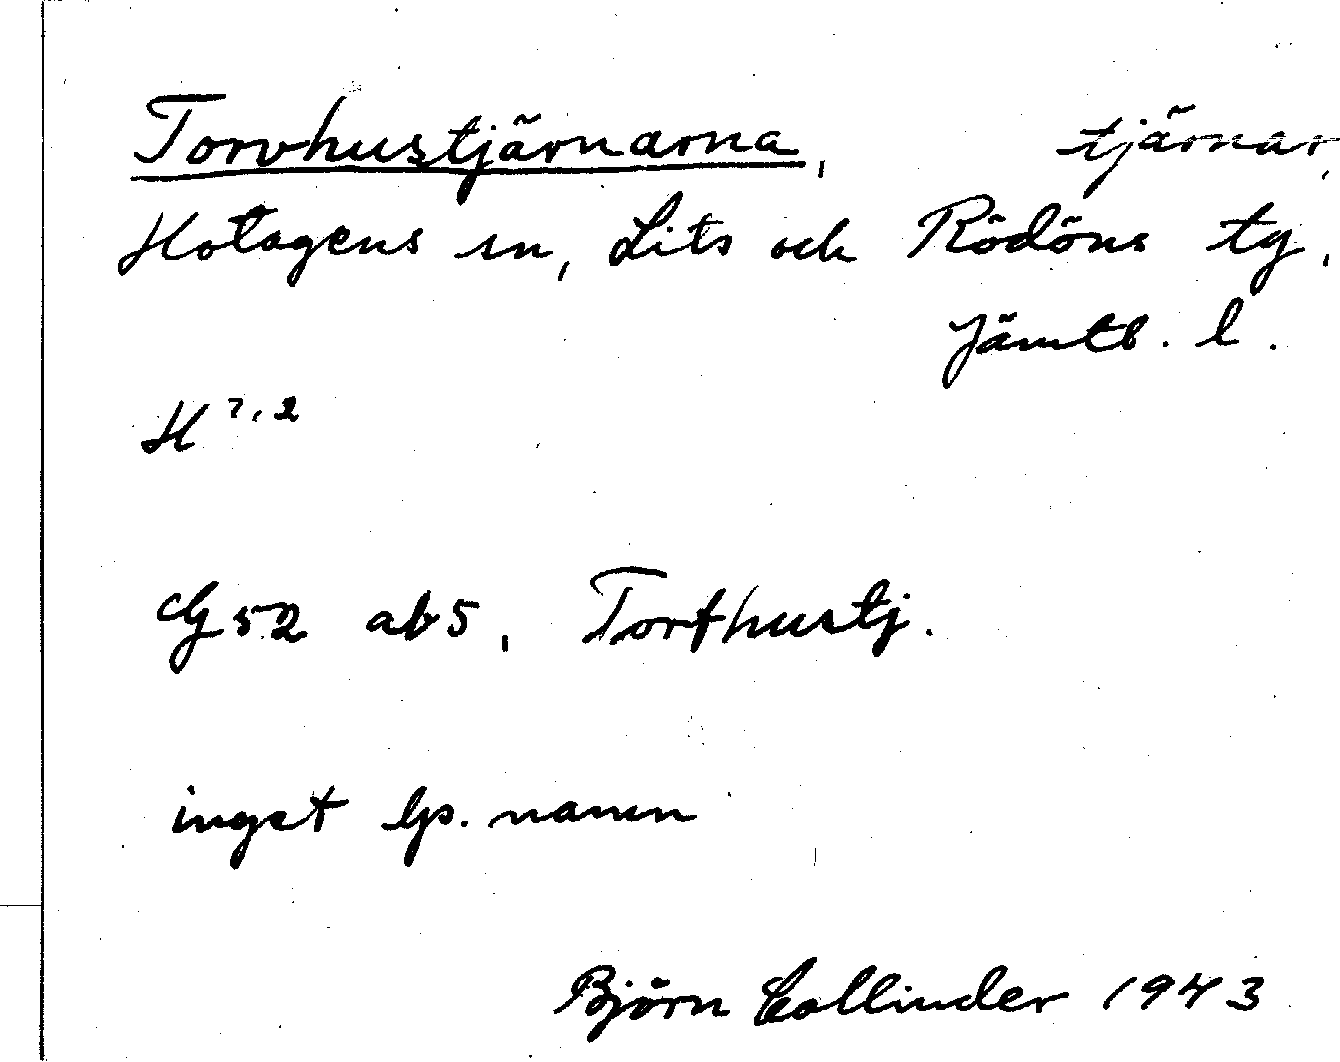 Torvhustjärnarna, tjärnar,
Hotagens sn, Lits och Rödöns tg,
Jämtl. l.
H 7, 2
G 52 ab 5, Torfhustj.
inget lp. namn
Björn Collinder 1943